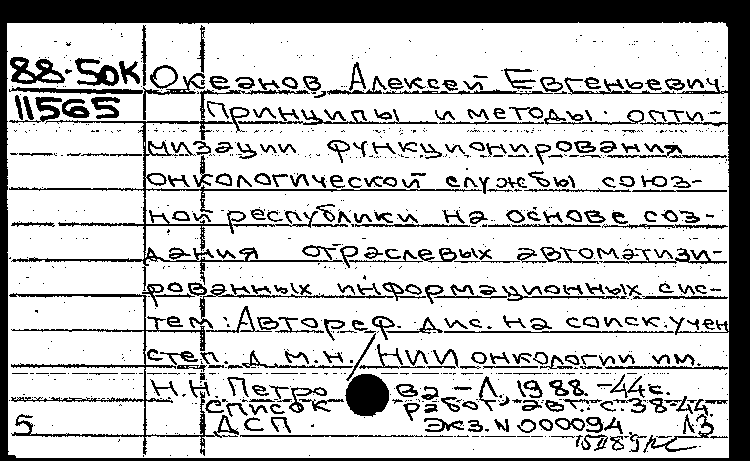 88-50К Океанов, Алексей Евгеньевич
11565 Принципы и методы опти-
мизации функционирования
онкологической службы союз-
ной республики на основе соз-
дания отраслевых автоматизи-
рованных информационных сис-
тем: Автореф. дис. на соиск. учен
степ. д. м.н. / НИИ онкологии им.
Н.Н. Петрова - Л, 1988 - 44с.
Список работ авт.: с. 38-44.
5 ДСП. Экз. N 000094.